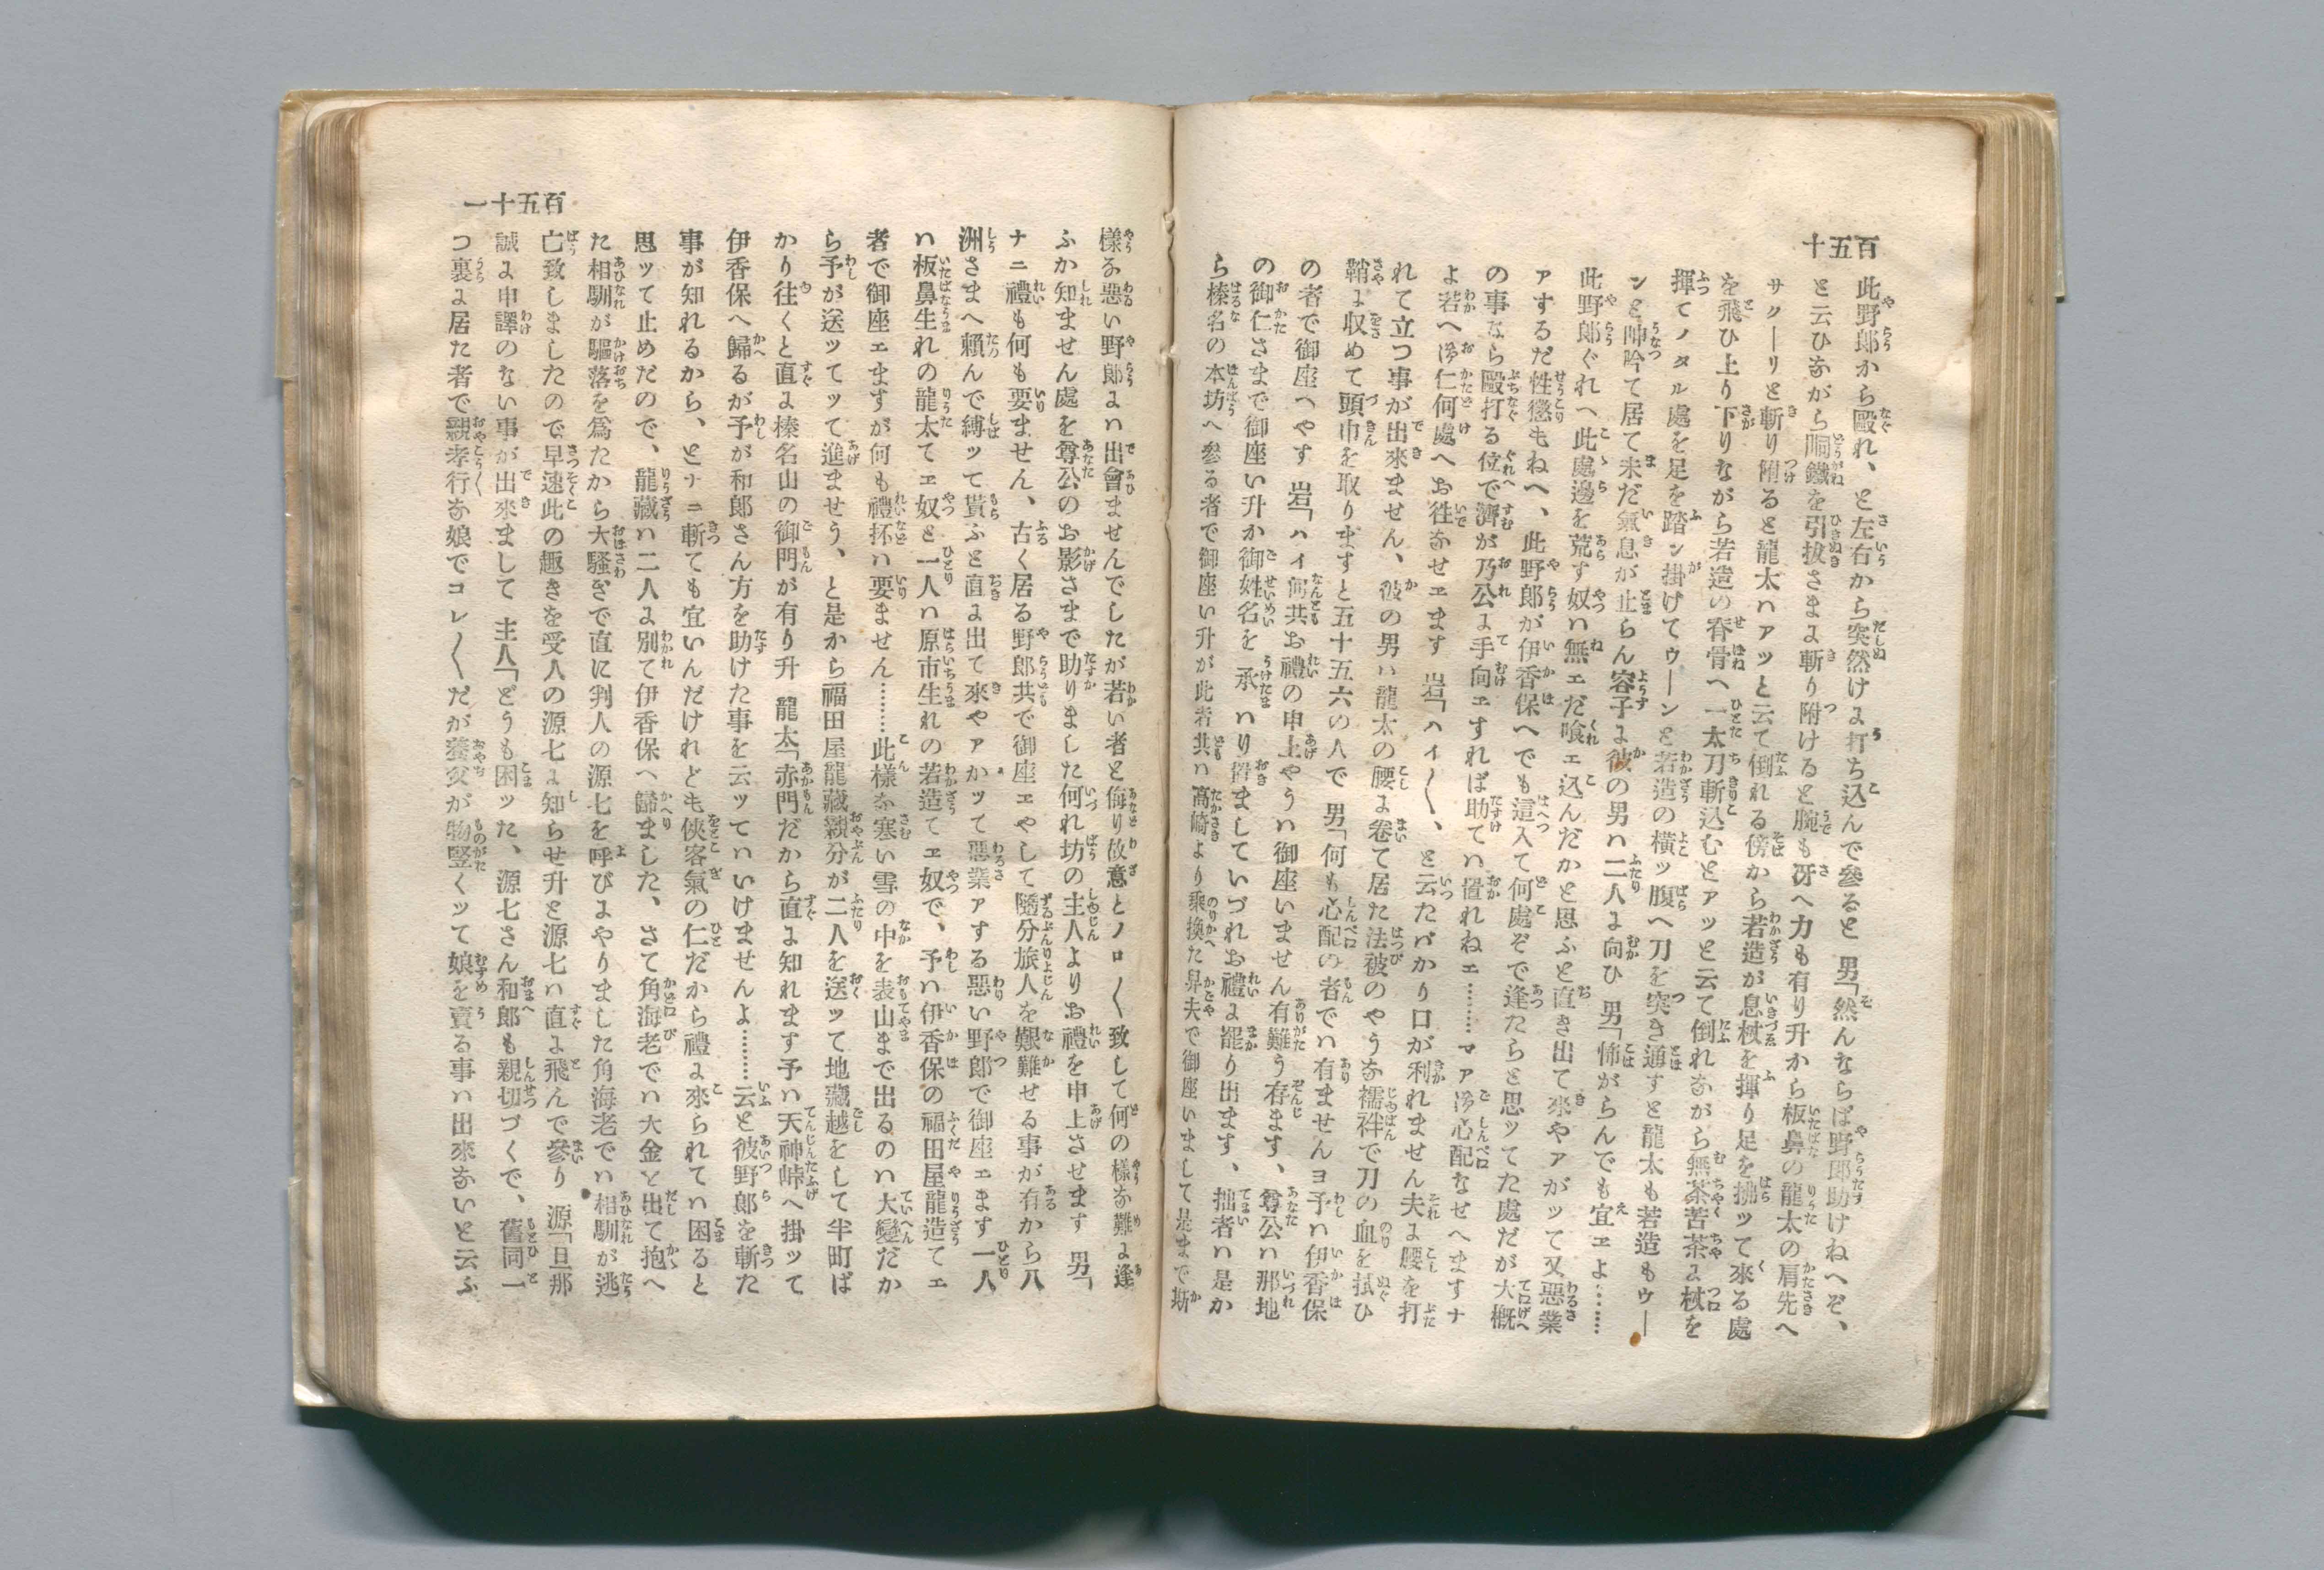 百五十
此野郎から毆れ、と左右から突然けよ打ち込んで參ると 男「然んならば野郎助けねへぞ、
と云ひながら胴鐵を引拔さまよ斬り附けると腕も冴へ力も有り升から板鼻の龍太の肩先へ
サクーリと斬り附ると龍太ハアッと云て倒れる傍から若造が息杖を揮り足を拂ッて來る處
を飛ひ上り下りながら若造の脊骨へ一太刀斬込むとアッと云て倒れながら無茶苦茶よ杖を
揮てノタル處を足を踏ン掛げてゥーンと若造の橫ッ腹へ刀を突き通すと龍太も若造もゥー
ンと呻吟て居て未だ氣息が止らん容子よ彼の男ハ二人よ向ひ 男「怖がらんでも宜エよ………
此野郎ぐれへ此處邊を荒す奴ハ無エだ喰エ込んだかと思ふと直き出て來やアがッて又惡業
アするだ性懲もねへ、此野郎が伊香保へでも這入て何處ぞで逢たらと思ッてた處だが大概
の事なら毆打る位で濟むが乃公よ手向エすれば助てハ置れねエ………マア心配なせへますナ
よ若へ仁何處へお徃なせエます 岩「ハイ〱、と云たバかり口が利れません夫よ腰を打
れて立つ事が出來ません、彼の男ハ龍太の腰よ卷て居た法被のやうな襦袢で刀の血を拭ひ
鞘よ収めて頭巾を取りますと五十五六の人で 男「何も心配の者でハ有ませんヨ予ハ伊香保
の者で御座へやす 岩「ハイ何共お禮の申上やうハ御座いません有難う存ます、尊公ハ那地
の御仁さまで御座い升か御姓名を 承ハり置ましていづれお禮よ罷り出ます、拙者ハ是か
ら榛名の本坊へ參る者で御座い升が此者共ハ高崎より乘換た舁夫で御座いまして是まで斯
百五十一
樣な惡い野郎よハ出會ませんでしたが若い者と侮り故意とノロ〱致して何の樣な難よ逢
ふか知ません處を尊公のお影さまで助りました何れ坊の主人よりお禮を申上させます 男「
ナニ禮も何も要ません、古く居る野郎共で御座エやして隨分旅人を艱難せる事が有から八
洲さまへ賴んで縛ッて貰ふと直よ出て來やアかッて惡業アする惡い野郎で御座エます一人
ハ板鼻生れの龍太てエ奴と一人ハ原市生れの若造てエ奴で、予ハ伊香保の福田屋龍造てエ
者で御座エますが何も禮抔ハ要ません………此樣な寒い雪の中を表山まで出るのハ大變だか
ら予が送ッてッて進ませう、と是から福田屋龍藏親分が二人を送ッて地藏越をして半町ば
かり往くと直よ榛名山の御門が有り升 龍太「赤門だから直よ知れます予ハ天神峠へ掛ッて
伊香保へ歸るが予が和郎さん方を助けた事を云ッてハいけませんよ………云と彼野郎を斬た
事が知れるから、とナニ斬ても宜いんだけれども俠客氣の仁だから禮よ來られてハ困ると
思ッて止めだので、龍藏ハ二人よ別て伊香保へ歸ました、さて角海老でハ大金と出て抱へ
た相馴が驅落を爲たから大騷ぎで直に判人の源七を呼びよやりました角海老でハ相馴が逃
亡致しましたので早速此の趣きを受人の源七よ知らせ升と源七ハ直よ飛んで參り 源「旦那
誠よ申譯のない事が出來まして 主人「どうも困ッた、源七さん和郎も親切づくで、舊同一
つ裏よ居た者で親孝行な娘でコレ〱だが養父が物堅くッて娘を賣る事ハ出來ないと云ふ